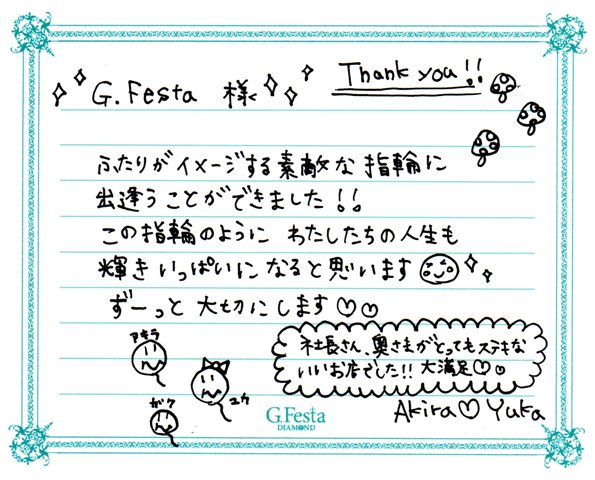 Thank you!!
G.Festa 様
ふたりがイメージする素敵な指輪に
出逢うことができました!!
この指輪のように わたしたちの人生も
輝きいっぱいになると思います
ずーっと大切にします♡♡
社長さん、奥さまがとってもステキな
いいお店でした!! 大満足♡♡
アキラ
ユウ
ガク
Akira♡Yuka
G.Festa
DIAMOND